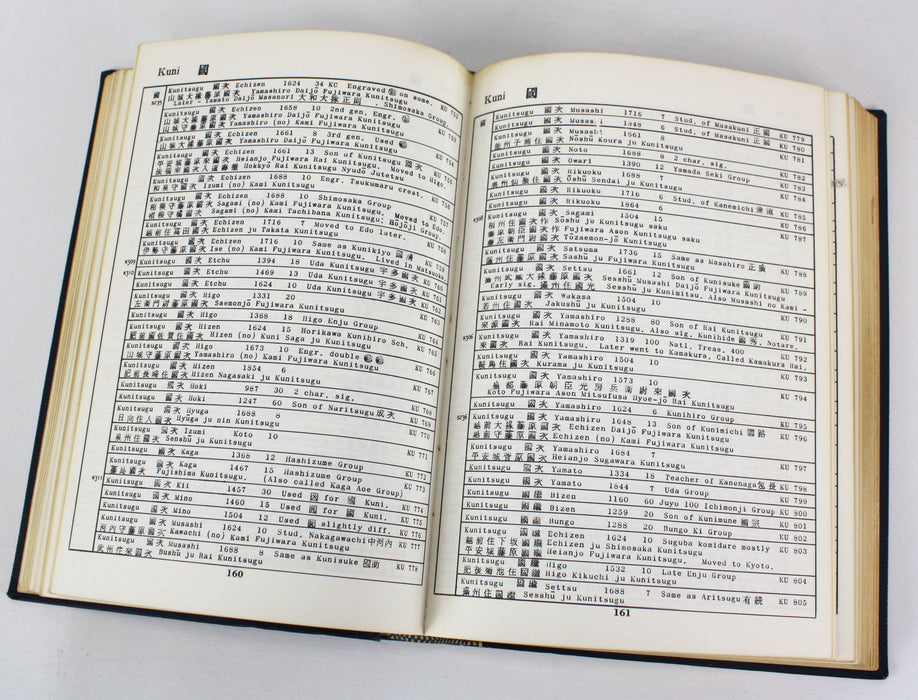 Kuni 國
國 Kunitsugu 國次 Echizen 1624 34 KC Engraved on some. KU 752
S235 山城大掾藤原國次 Yamashiro Daijō Fujiwara Kunitsugu
Later - Yamato Daijō Masanori 大和大掾正則. Shimosaka Group.
Kunitsugu 國次 Echizen 1658 10 2nd gen. Engr.
山城大掾藤原國次 Yamashiro Daijō Fujiwara Kunitsugu
山城守藤原國次 Yamashiro (no) Kami Fujiwara Kunitsugu
Kunitsugu 國次 Echizen 1661 8 3rd gen. Used
山城大掾藤原國次 Yamashiro Daijō Fujiwara Kunitsugu
Kunitsugu 國次 Echizen 1661 13 Son of Kunitsugu 國次
平安城藤原來國次 Heianjo Fujiwara Rai Kunitsugu. Moved to Edo.
Dokkyō Rai Kunitsugu Nyudō Jutetsu KU 756
Kunitsugu 國次 Echizen 1688 10 Engr. Tsukumaru crest.
和泉守國次 Izumi (no) Kami Kunitsugu KU 757
Kunitsugu 國次 Echizen 1688 10 Shimosaka Group
相模守藤原國次 Sagami (no) Kami Fujiwara Kunitsugu. Moved to Edo.
相模守橘國次 Sagami (no) Kami Tachibana Kunitsugu; Hōjōji Group.
Kunitsugu 國次 Echizen 1716 7 Moved to Edo later.
越前住高田國次 Echizen ju Takata Kunitsugu KU 758
Kunitsugu 國次 Echizen 1716 10 Same as Kunikiyo 國清
伊勢守藤原國次 Ise (no) Kami Fujiwara Kunitsugu. Lived in Matsuoka KU 759
K309 Kunitsugu 國次 Etchu 1394 18 Uda Kunitsugu 宇多國次 KU 760
K310 Kunitsugu 國次 Etchu 1469 13 Uda Kunitsugu 宇多國次 KU 761
Kunitsugu 國次 Etchu 1624 10 Uda Kunitsugu 宇多國次 KU 762
Kunitsugu 國次 Higo 1331 20
左衛門尉藤原國次 Saemonjō Fujiwara Kunitsugu KU 763
Kunitsugu 國次 Higo 1368 18 Higo Enju Group KU 764
Kunitsugu 國次 Hizen 1624 15 Horikawa Kunihiro Sch.
肥前國佐賀住國次 Hizen (no) Kuni Saga ju Kunitsugu KU 765
Kunitsugu 國次 Higo 1673 10 Engr. double
山城守藤原國次 Yamashiro (no) Kami Fujiwara Kunitsugu KU 766
Kunitsugu 國次 Hizen 1854 6
肥前長崎住國次 Hizen Nagasaki ju Kunitsugu KU 767
Kunitsugu 國次 Hoki 987 30 2 char. sig. KU 768
Kunitsugu 國次 Hoki 1247 60 Son of Naritsugu 成次 KU 769
Kunitsugu 國次 Hyuga 1688 8
日向住人國次 Hyūga ju nin Kunitsugu KU 770
Kunitsugu 國次 Izumi Koto 10
泉州住國次 Senshū ju Kunitsugu KU 771
Kunitsugu 國次 Kaga 1368 12 Hashizume Group KU 772
Kunitsugu 國次 Kaga 1467 15 Hashizume Group
藤島國次 Fujishima Kunitsugu. (Also called Kaga Aoe Group) KU 773
K311 Kunitsugu 國次 Kii 1457 30 Used 因 for 國 Kuni. KU 774
Kunitsugu 國次 Mino 1460 15 Used for 國 Kuni. KU 775
Kunitsugu 國次 Mino 1504 12 Used slightly diff. KU 776
Kunitsugu 國次 Musashi 1624 10 Stud. Nakagawachi 中河内
河内守藤原國次 Kawachi (no) Kami Fujiwara Kunitsugu KU 777
Kunitsugu 國次 Musashi 1688 8 Same as Kunisuke 國助
武州住來國次 Bushū ju Rai Kunitsugu KU 778
160
Kuni 國
國 Kunitsugu 國次 Musashi 1716 7 Stud. of Masakuni 正國 KU 779
Kunitsugu 國次 Musasi 1848 6 Stud. of Masakuni 正國 KU 780
Kunitsugu 國次 Musashi 1661 8
Nōshū Koura ju Kunitsugu KU 781
Kunitsugu 國次 Noto 1688 8 2 char. sig. KU 782
Kunitsugu 國次 Owari 1390 12 Yamada Seki Group KU 783
Kunitsugu 國次 Rikuoku 1688 7
奥州仙臺住國次 Ōshū Sendai ju Kunitsugu KU 784
Kunitsugu 國次 Rikuoku 1716 6 Stud. of Kanemichi 兼道 KU 785
Kunitsugu 國次 Rikuoku 1864 6 KU 786
K308 Kunitsugu 國次 Sagami 1504 15
相州住國次作 Sōshū ju Kunitsugu saku
藤原朝臣國次作 Fujiwara Ason Kunitsugu saku
藤左衛門尉國次 Tōzaemon-jō Kunitsugu KU 787
Kunitsugu 國次 Satsuma 1736 15 Same as Masahiro 正廣
薩州住藤原國次 Sasshū ju Fujiwara Kunitsugu KU 788
Kunitsugu 國次 Settsu 1661 12 Son of Kunisuke 國助
攝州武藏大掾藤原國次 Sesshū Musashi Daijō Fujiwara Kunitsugu
Early sig. 攝州住國光 Sesshū ju Kunimitsu. Also Musashi no Kami - KU 789
Kunitsugu 國次 Wakasa 1504 10
若州住國次 Jakushū ju Kunitsugu KU 790
Kunitsugu 國次 Yamashiro 1288 80 Son of Rai Kunitsugu
來源國次 Rai Minamoto Kunitsugu. Also sig. Kunihide 國秀. Notare. KU 791
K306 Kunitsugu 國次 Yamashiro 1319 100 Natl. Treas. 400
來國次 Rai Kunitsugu. Later went to Kamakura. Called Kamakura Rai. KU 792
Kunitsugu 國次 Yamashiro 1504 10
鞍馬住國次 Kurama ju Kunitsugu KU 793
Kunitsugu 國次 Yamashiro 1573 10
後都藤原朝臣光房兵衛尉來國次
Koto Fujiwara Ason Mitsufusa Hyoe-jō Rai Kunitsugu KU 794
S236 Kunitsugu 國次 Yamashiro 1624 6 Kunihiro Group KU 795
Kunitsugu 國次 Yamashiro 1648 13 Son of Kunimichi 國路
越前大掾藤原國次 Echizen Daijō Fujiwara Kunitsugu
越前守藤原國次 Echizen (no) Kami Fujiwara Kunitsugu KU 796
Kunitsugu 國次 Yamashiro 1684 7
平安城菅原國次 Heianjo Sugawara Kunitsugu KU 797
Kunitsugu 國次 Yamato 1334 18 Teacher of Kanenaga 包長 KU 798
Kunitsugu 國次 Yamato 1844 7 Uda Group KU 799
Kunitsugu 國繼 Bizen 1160 60 Juyo 100 Ichimonji Group KU 800
Kunitsugu 國繼 Bizen 1259 20 Son of Kunimune 國宗 KU 801
Kunitsugu 國繼 Bungo 1288 20 Bungo Ki Group KU 802
Kunitsugu 國繼 Echizen 1624 10 Suguba komidare mostly
越前住下坂國繼 Echizen ju Shimosaka Kunitsugu
平安城藤原國繼 Heianjo Fujiwara Kunitsugu. Moved to Kyoto. KU 803
Kunitsugu 國繼 Higo 1532 10 Late Enju Group
肥後菊池住國繼 Higo Kikuchi ju Kunitsugu KU 804
Kunitsugu 國繼 Settsu 1688 7 Same as Aritsugu 有続
攝州住國繼 Sesshū ju Kunitsugu KU 805
161